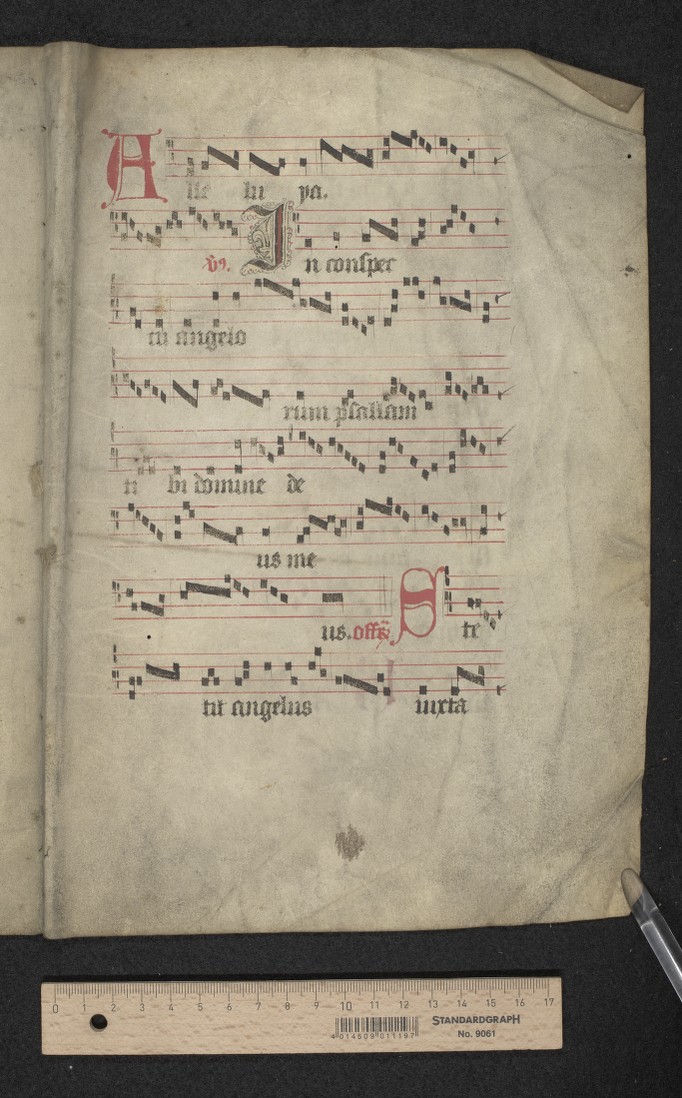 Alle lu ya.
v9. In conspec
tu angelo
rum psallam
ti bi domine de
us me
us. off Ste
tit angelus iuxta
0 1 2 3 4 5 6 7 8 9 10 11 12 13 14 15 16 17
STANDARDGRAPH
4 014509 011197 No. 9061